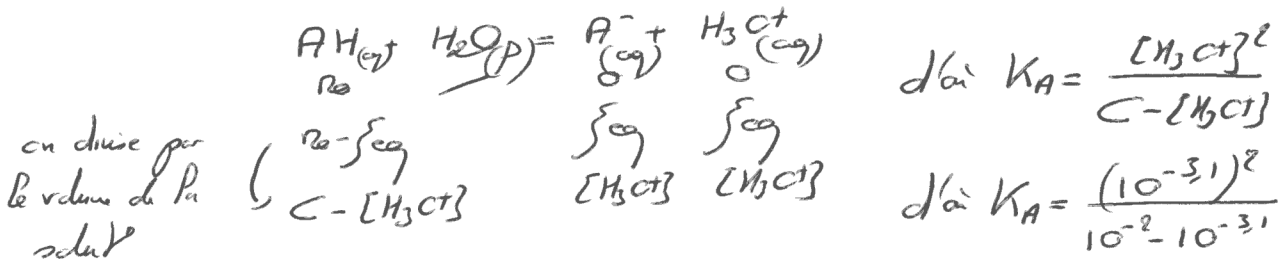 AH(aq) + H₂O(l) = A⁻(aq) + H₃O⁺(aq)
n₀ 0 0
n₀ - ξeq ξeq ξeq
on divise par le volume de la solut°
C - [H₃O⁺] [H₃O⁺] [H₃O⁺]
d'où K_A = [H₃O⁺]² / (C - [H₃O⁺])
d'où K_A = (10⁻³,¹)² / (10⁻² - 10⁻³,¹)